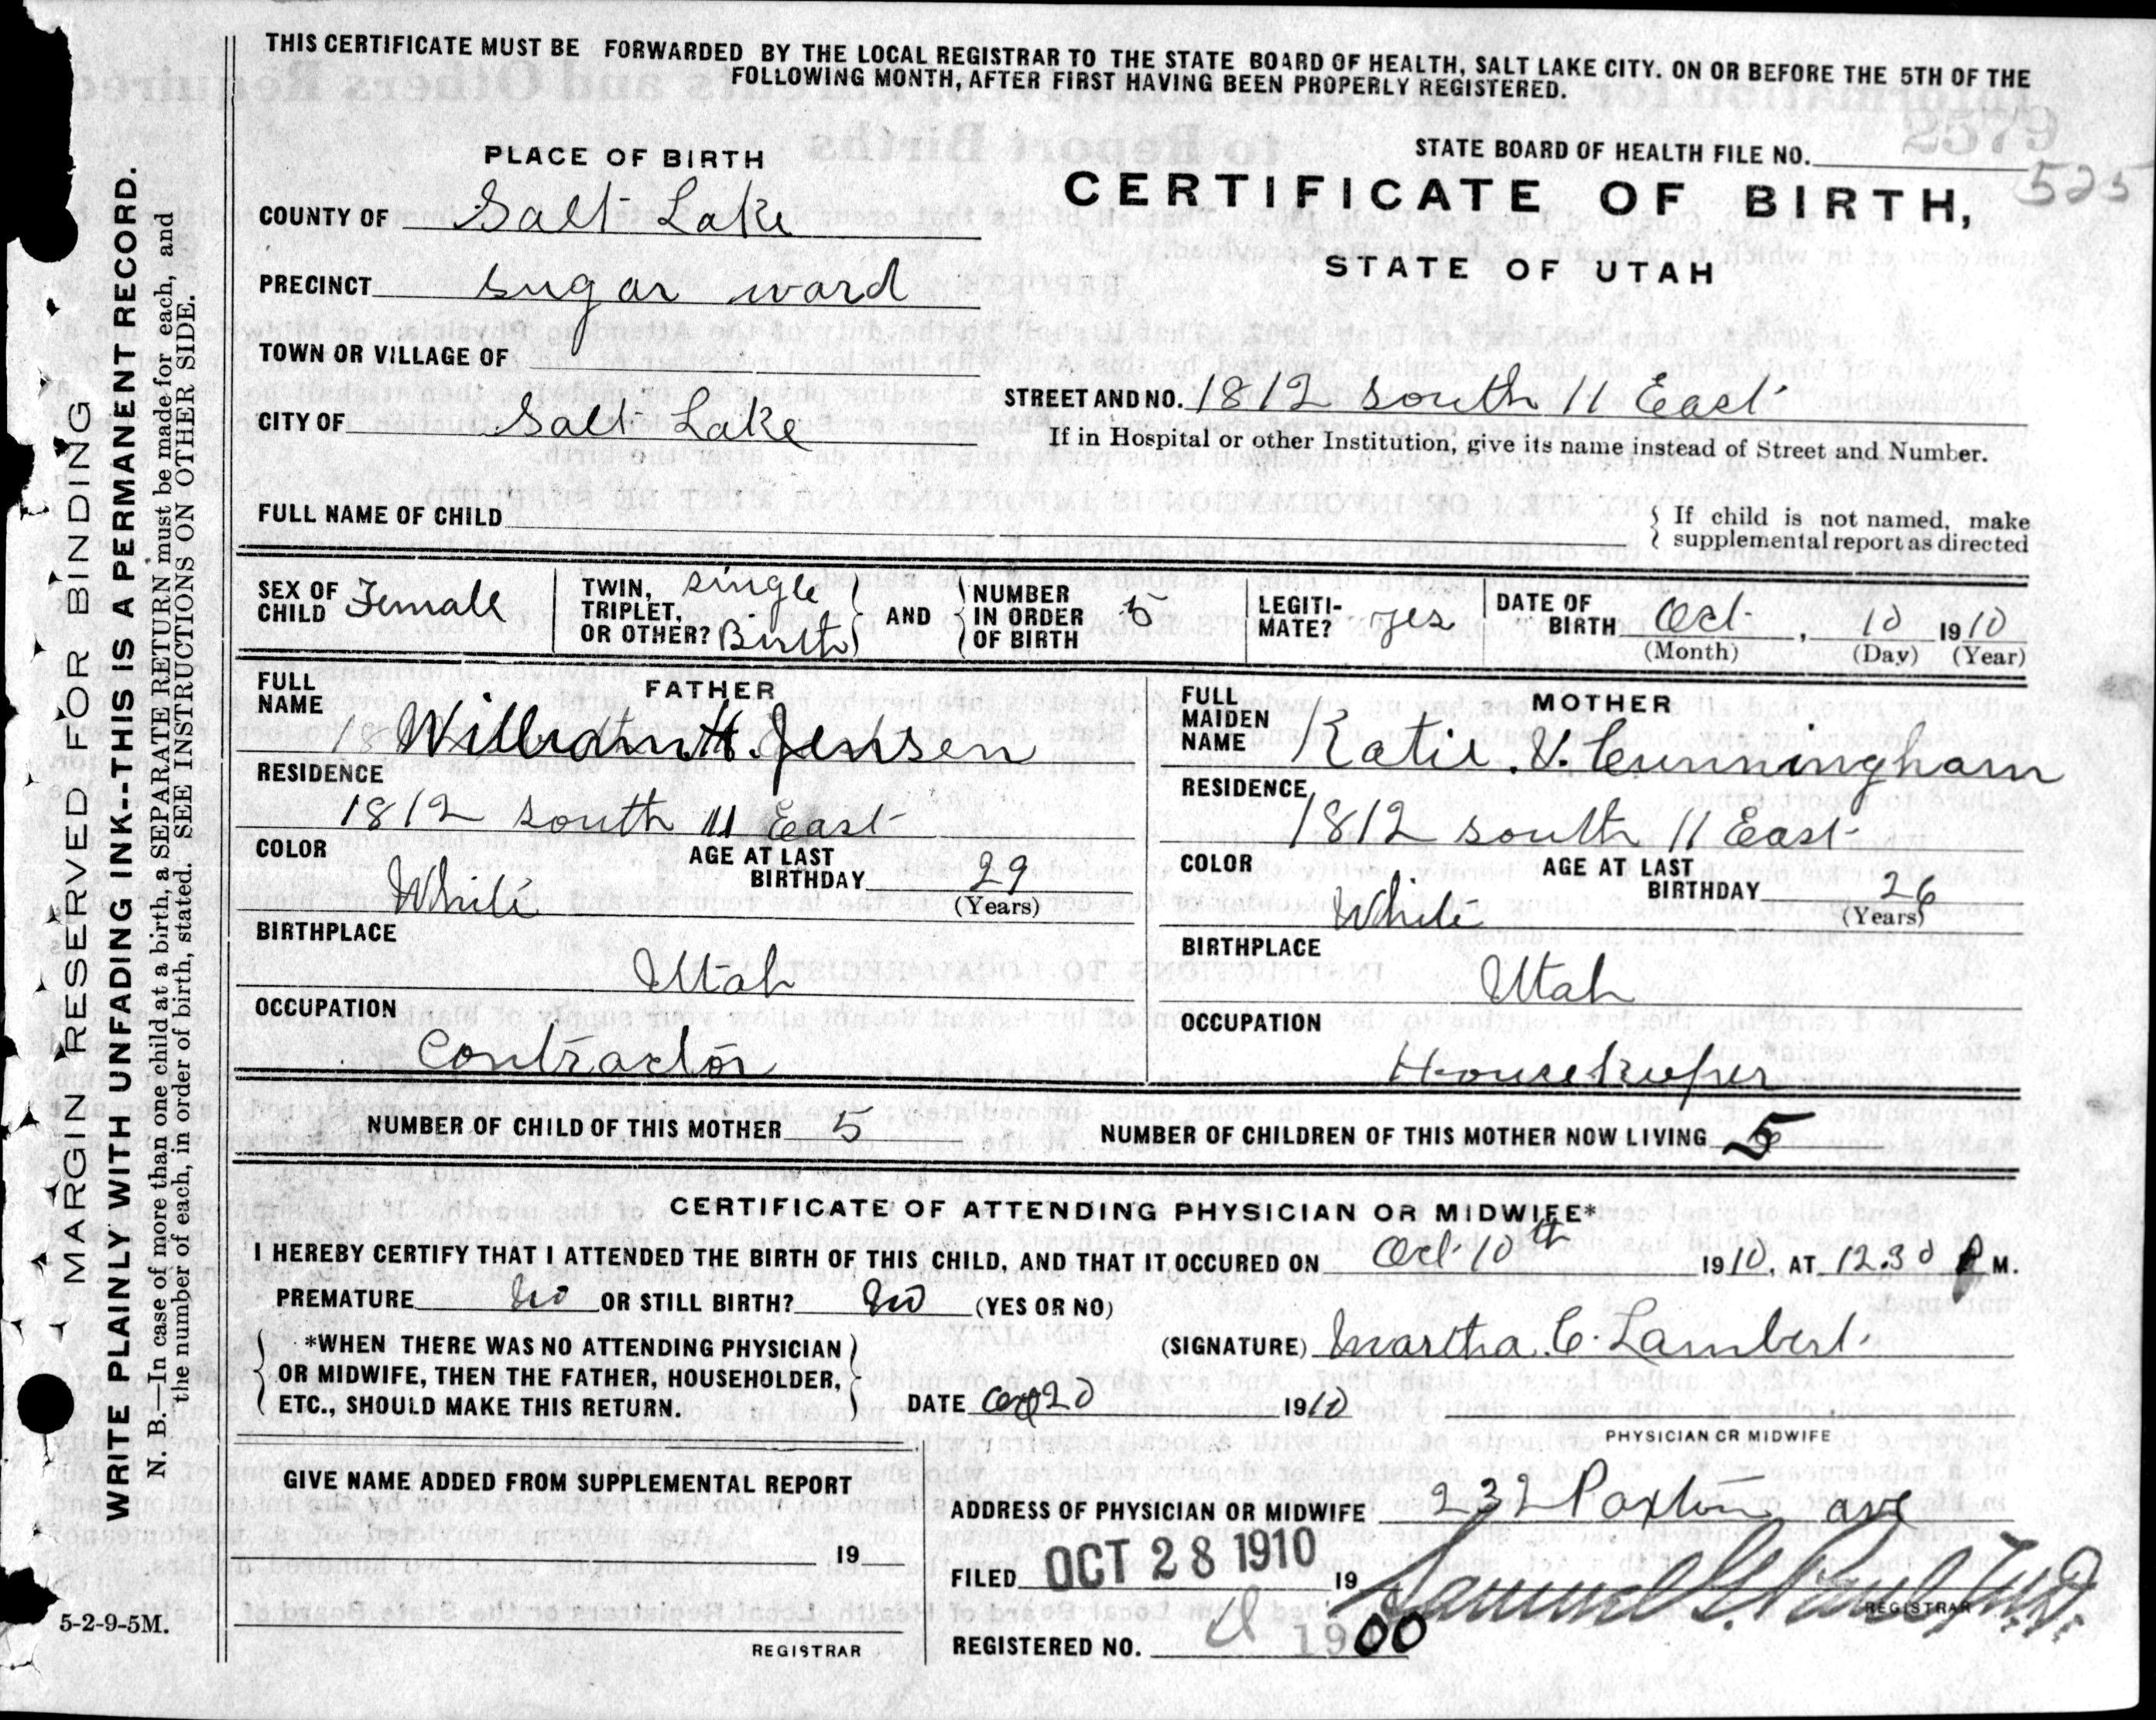 THIS CERTIFICATE MUST BE FORWARDED BY THE LOCAL REGISTRAR TO THE STATE BOARD OF HEALTH, SALT LAKE CITY. ON OR BEFORE THE 5TH OF THE
FOLLOWING MONTH, AFTER FIRST HAVING BEEN PROPERLY REGISTERED.
2579
STATE BOARD OF HEALTH FILE NO.
525
PLACE OF BIRTH
CERTIFICATE OF BIRTH,
STATE OF UTAH
COUNTY OF Salt Lake
PRECINCT Sugar ward
TOWN OR VILLAGE OF
STREET AND NO. 1812 south 11 East
CITY OF Salt Lake
If in Hospital or other Institution, give its name instead of Street and Number.
FULL NAME OF CHILD
If child is not named, make
supplemental report as directed
SEX OF CHILD Female
TWIN, TRIPLET, OR OTHER? single Birth
AND NUMBER IN ORDER OF BIRTH 5
LEGITI-MATE? yes
DATE OF BIRTH Oct , 10 1910
(Month) (Day) (Year)
FATHER
FULL NAME William H. Jensen
RESIDENCE
1812 south 11 East
COLOR White
AGE AT LAST BIRTHDAY 29
(Years)
BIRTHPLACE
Utah
OCCUPATION
Contractor
MOTHER
FULL MAIDEN NAME Katie. V. Cunningham
RESIDENCE
1812 south 11 East
COLOR White
AGE AT LAST BIRTHDAY 26
(Years)
BIRTHPLACE
Utah
OCCUPATION
Housekeeper
NUMBER OF CHILD OF THIS MOTHER 5
NUMBER OF CHILDREN OF THIS MOTHER NOW LIVING 5
CERTIFICATE OF ATTENDING PHYSICIAN OR MIDWIFE*
I HEREBY CERTIFY THAT I ATTENDED THE BIRTH OF THIS CHILD, AND THAT IT OCCURED ON Oct 10th 1910, AT 12.30 P M.
PREMATURE no OR STILL BIRTH? no (YES OR NO)
*WHEN THERE WAS NO ATTENDING PHYSICIAN
OR MIDWIFE, THEN THE FATHER, HOUSEHOLDER,
ETC., SHOULD MAKE THIS RETURN.
(SIGNATURE) Martha C. Lambert
DATE 20 1910
PHYSICIAN OR MIDWIFE
GIVE NAME ADDED FROM SUPPLEMENTAL REPORT
19
REGISTRAR
ADDRESS OF PHYSICIAN OR MIDWIFE 232 Paxton ave
FILED OCT 28 1910 19
Samuel G. Paul M.D.
REGISTRAR
REGISTERED NO. 1900
5-2-9-5M.
MARGIN RESERVED FOR BINDING
WRITE PLAINLY WITH UNFADING INK--THIS IS A PERMANENT RECORD.
N. B.—In case of more than one child at a birth, a SEPARATE RETURN must be made for each, and
the number of each, in order of birth, stated. SEE INSTRUCTIONS ON OTHER SIDE.